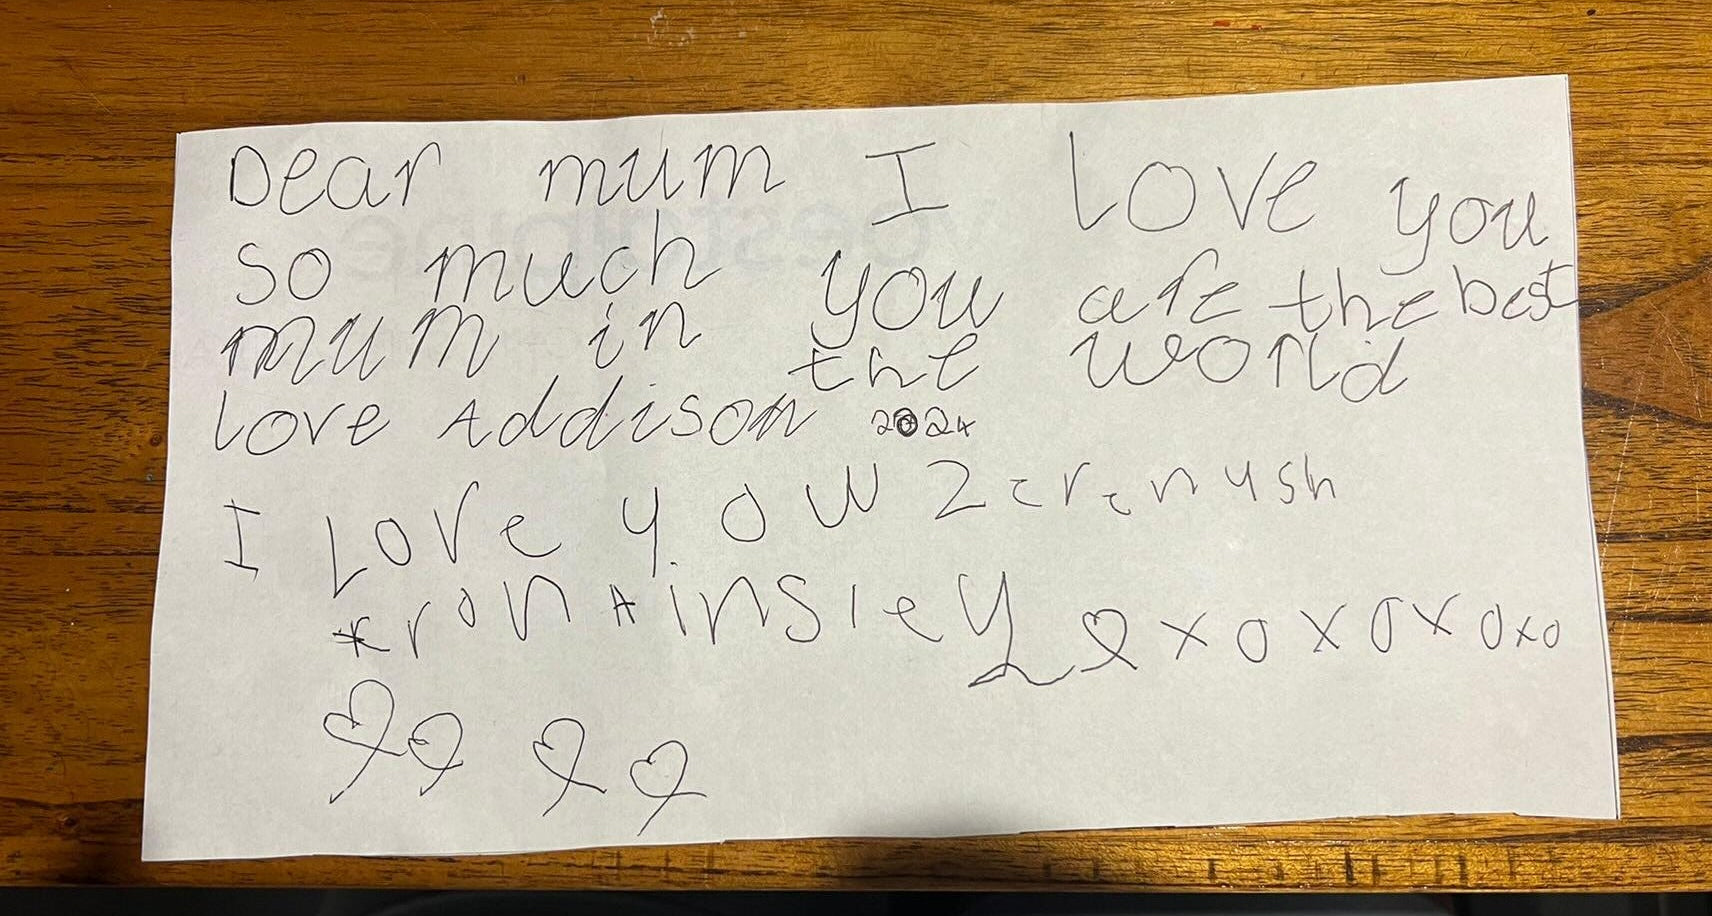 Dear mum I love you
so much you are the best
mum in the world
love Addison 2024
I Love you
fron Ainsley xoxoxoxo